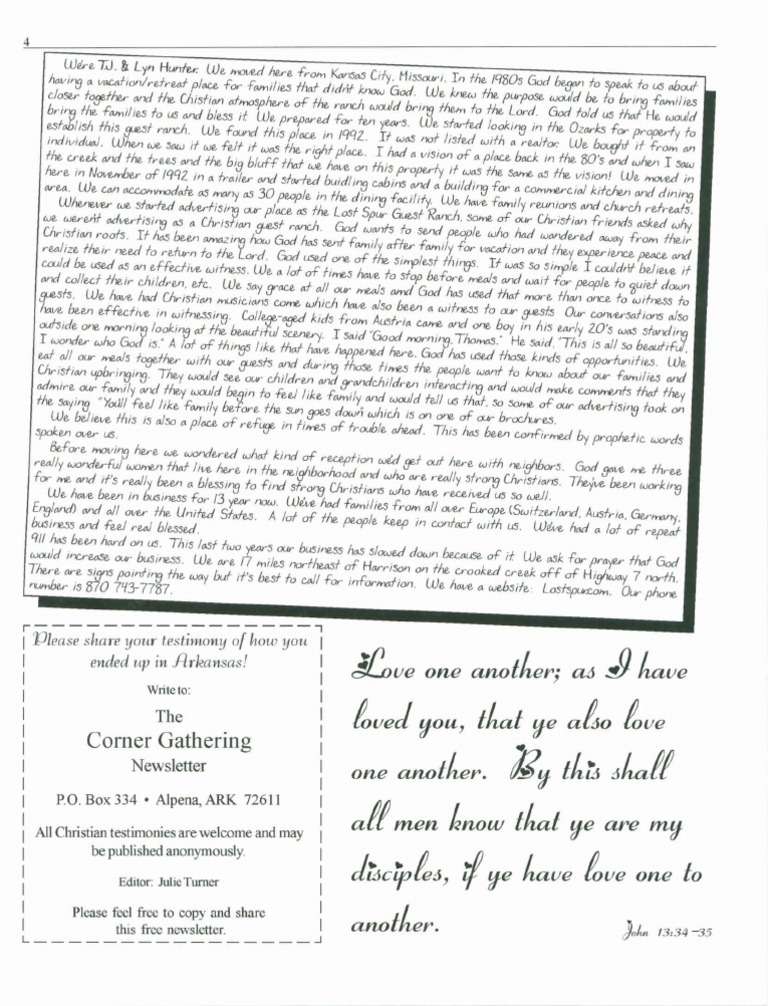 4
We're T.J. & Lyn Hunter. We moved here from Kansas City, Missouri. In the 1980s God began to speak to us about
having a vacation/retreat place for families that didn't know God. We knew the purpose would be to bring families
closer together and the Chistian atmosphere of the ranch would bring them to the Lord. God told us that He would
bring the families to us and bless it. We prepared for ten years. We started looking in the Ozarks for property to
establish this guest ranch. We found this place in 1992. It was not listed with a realtor. We bought it from an
individual. When we saw it we felt it was the right place. I had a vision of a place back in the 80's and when I saw
the creek and the trees and the big bluff that we have on this property it was the same as the vision! We moved in
here in November of 1992 in a trailer and started buidling cabins and a building for a commercial kitchen and dining
area. We can accommodate as many as 30 people in the dining facility. We have family reunions and church retreats.
Whenever we started advertising our place as the Lost Spur Guest Ranch, some of our Christian friends asked why
we weren't advertising as a Christian guest ranch. God wants to send people who had wandered away from their
Christian roots. It has been amazing how God has sent family after family for vacation and they experience peace and
realize their need to return to the Lord. God used one of the simplest things. It was so simple I couldn't believe it
could be used as an effective witness. We a lot of times have to stop before meals and wait for people to quiet down
and collect their children, etc. We say grace at all our meals amd God has used that more than once to witness to
guests. We have had Christian musicians come which have also been a witness to our guests Our conversations also
have been effective in witnessing. College-aged kids from Austria came and one boy in his early 20's was standing
outside one morning looking at the beautiful scenery. I said "Good morning, Thomas." He said, "This is all so beautiful,
I wonder who God is." A lot of things like that have happened here. God has used those kinds of opportunities. We
eat all our meals together with our guests and during those times the people want to know about our families and
Christian upbringing. They would see our children and grandchildren interacting and would make comments that they
admire our family and they would begin to feel like family and would tell us that, so some of our advertising took on
the saying "You'll feel like family before the sun goes down" which is on one of our brochures.
We believe this is also a place of refuge in times of trouble ahead. This has been confirmed by prophetic words
spoken over us.
Before moving here we wondered what kind of reception we'd get out here with neighbors. God gave me three
really wonderful women that live here in the neighborhood and who are really strong Christians. They've been working
for me and it's really been a blessing to find strong Christians who have received us so well.
We have been in business for 13 year now. We've had families from all over Europe (Switzerland, Austria, Germany,
England) and all over the United States. A lot of the people keep in contact with us. We've had a lot of repeat
business and feel real blessed.
911 has been hard on us. This last two years our business has slowed down because of it. We ask for prayer that God
would increase our business. We are 17 miles northeast of Harrison on the crooked creek off of Highway 7 north.
There are signs pointing the way but it's best to call for information. We have a website: Lostspur.com. Our phone
number is 870 743-7787.
Please share your testimony of how you
ended up in Arkansas!
Write to:
The
Corner Gathering
Newsletter
P.O. Box 334 • Alpena, ARK 72611
All Christian testimonies are welcome and may
be published anonymously.
Editor: Julie Turner
Please feel free to copy and share
this free newsletter.
Love one another; as I have
loved you, that ye also love
one another. By this shall
all men know that ye are my
disciples, if ye have love one to
another.
John 13:34-35